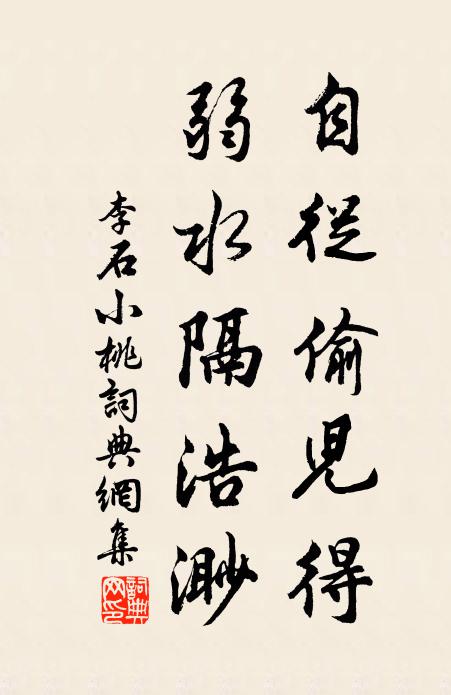 自從偷兒得
弱水隔浩渺
李石小桃詞典網集
詞典网印